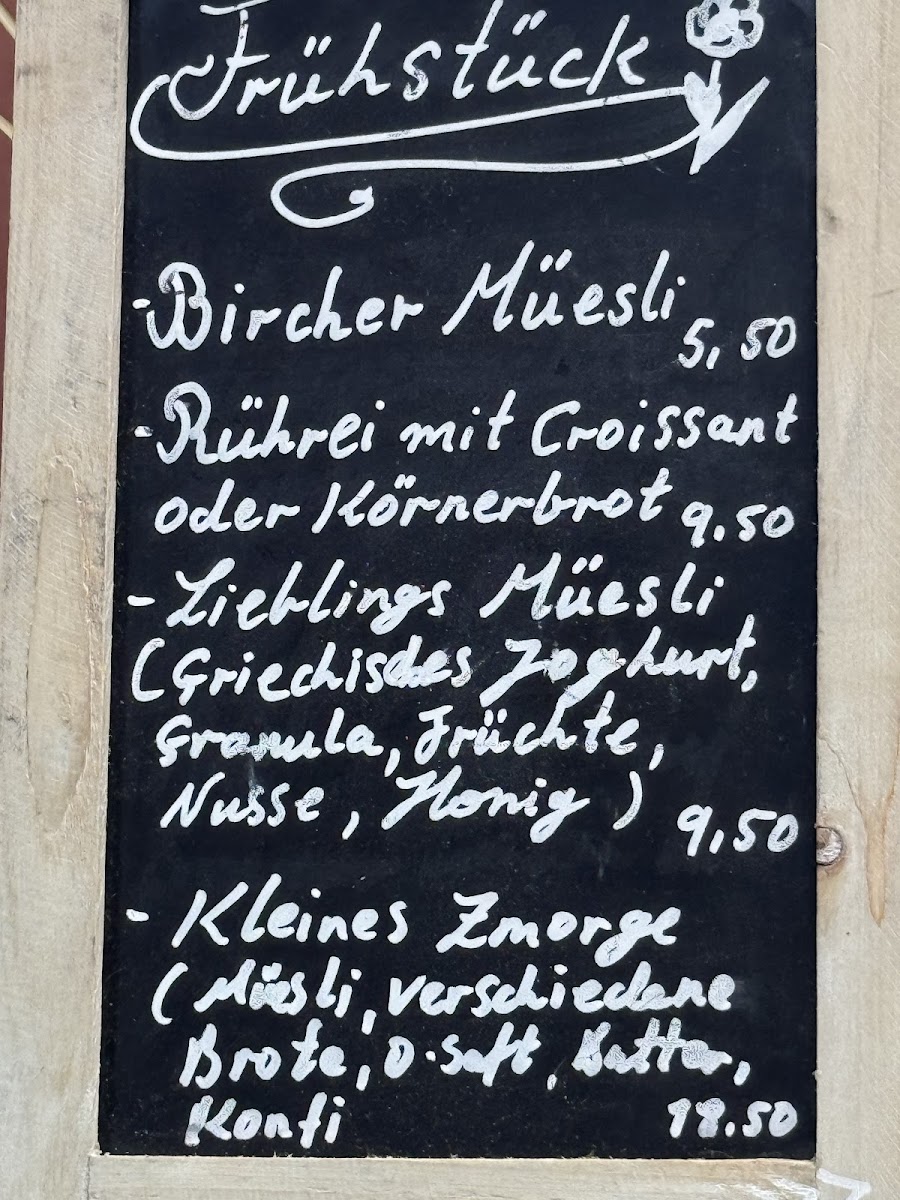 Frühstück
- Bircher Müesli
5,50
- Rührei mit Croissant
oder Körnerbrot 9.50
- Lieblings Müesli
(Griechisches Joghurt,
Granula, Früchte,
Nüsse, Honig) 9,50
- Kleines Zmorge
(Müesli, verschiedene
Brote, O-Saft, Butter,
Konfi 18.50